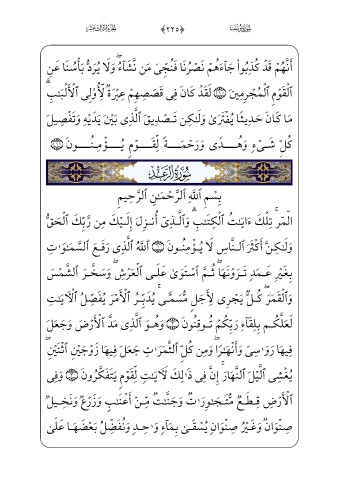 أَنَّهُمْ قَدْ كُذِبُوا۟ جَآءَهُمْ نَصْرُنَا فَنُجِّىَ مَن نَّشَآءُ ۖ وَلَا يُرَدُّ بَأْسُنَا عَنِ
ٱلْقَوْمِ ٱلْمُجْرِمِينَ ١١٠ لَقَدْ كَانَ فِى قَصَصِهِمْ عِبْرَةٌ لِّأُو۟لِى ٱلْأَلْبَـٰبِ ۗ
مَا كَانَ حَدِيثًا يُفْتَرَىٰ وَلَـٰكِن تَصْدِيقَ ٱلَّذِى بَيْنَ يَدَيْهِ وَتَفْصِيلَ
كُلِّ شَىْءٍ وَهُدًى وَرَحْمَةً لِّقَوْمٍ يُؤْمِنُونَ ١١١
سُورَةُ الرَّعْد
بِسْمِ ٱللَّهِ ٱلرَّحْمَـٰنِ ٱلرَّحِيمِ
الٓمٓر ۚ تِلْكَ ءَايَـٰتُ ٱلْكِتَـٰبِ ۗ وَٱلَّذِىٓ أُنزِلَ إِلَيْكَ مِن رَّبِّكَ ٱلْحَقُّ
وَلَـٰكِنَّ أَكْثَرَ ٱلنَّاسِ لَا يُؤْمِنُونَ ١ ٱللَّهُ ٱلَّذِى رَفَعَ ٱلسَّمَـٰوَٰتِ
بِغَيْرِ عَمَدٍ تَرَوْنَهَا ۖ ثُمَّ ٱسْتَوَىٰ عَلَى ٱلْعَرْشِ ۖ وَسَخَّرَ ٱلشَّمْسَ
وَٱلْقَمَرَ ۖ كُلٌّ يَجْرِى لِأَجَلٍ مُّسَمًّى ۚ يُدَبِّرُ ٱلْأَمْرَ يُفَصِّلُ ٱلْـَٔايَـٰتِ
لَعَلَّكُم بِلِقَآءِ رَبِّكُمْ تُوقِنُونَ ٢ وَهُوَ ٱلَّذِى مَدَّ ٱلْأَرْضَ وَجَعَلَ
فِيهَا رَوَٰسِىَ وَأَنْهَـٰرًا ۖ وَمِن كُلِّ ٱلثَّمَرَٰتِ جَعَلَ فِيهَا زَوْجَيْنِ ٱثْنَيْنِ ۖ
يُغْشِى ٱلَّيْلَ ٱلنَّهَارَ ۚ إِنَّ فِى ذَٰلِكَ لَـَٔايَـٰتٍ لِّقَوْمٍ يَتَفَكَّرُونَ ٣ وَفِى
ٱلْأَرْضِ قِطَعٌ مُّتَجَـٰوِرَٰتٌ وَجَنَّـٰتٌ مِّنْ أَعْنَـٰبٍ وَزَرْعٌ وَنَخِيلٌ
صِنْوَانٌ وَغَيْرُ صِنْوَانٍ يُسْقَىٰ بِمَآءٍ وَٰحِدٍ وَنُفَضِّلُ بَعْضَهَا عَلَىٰ